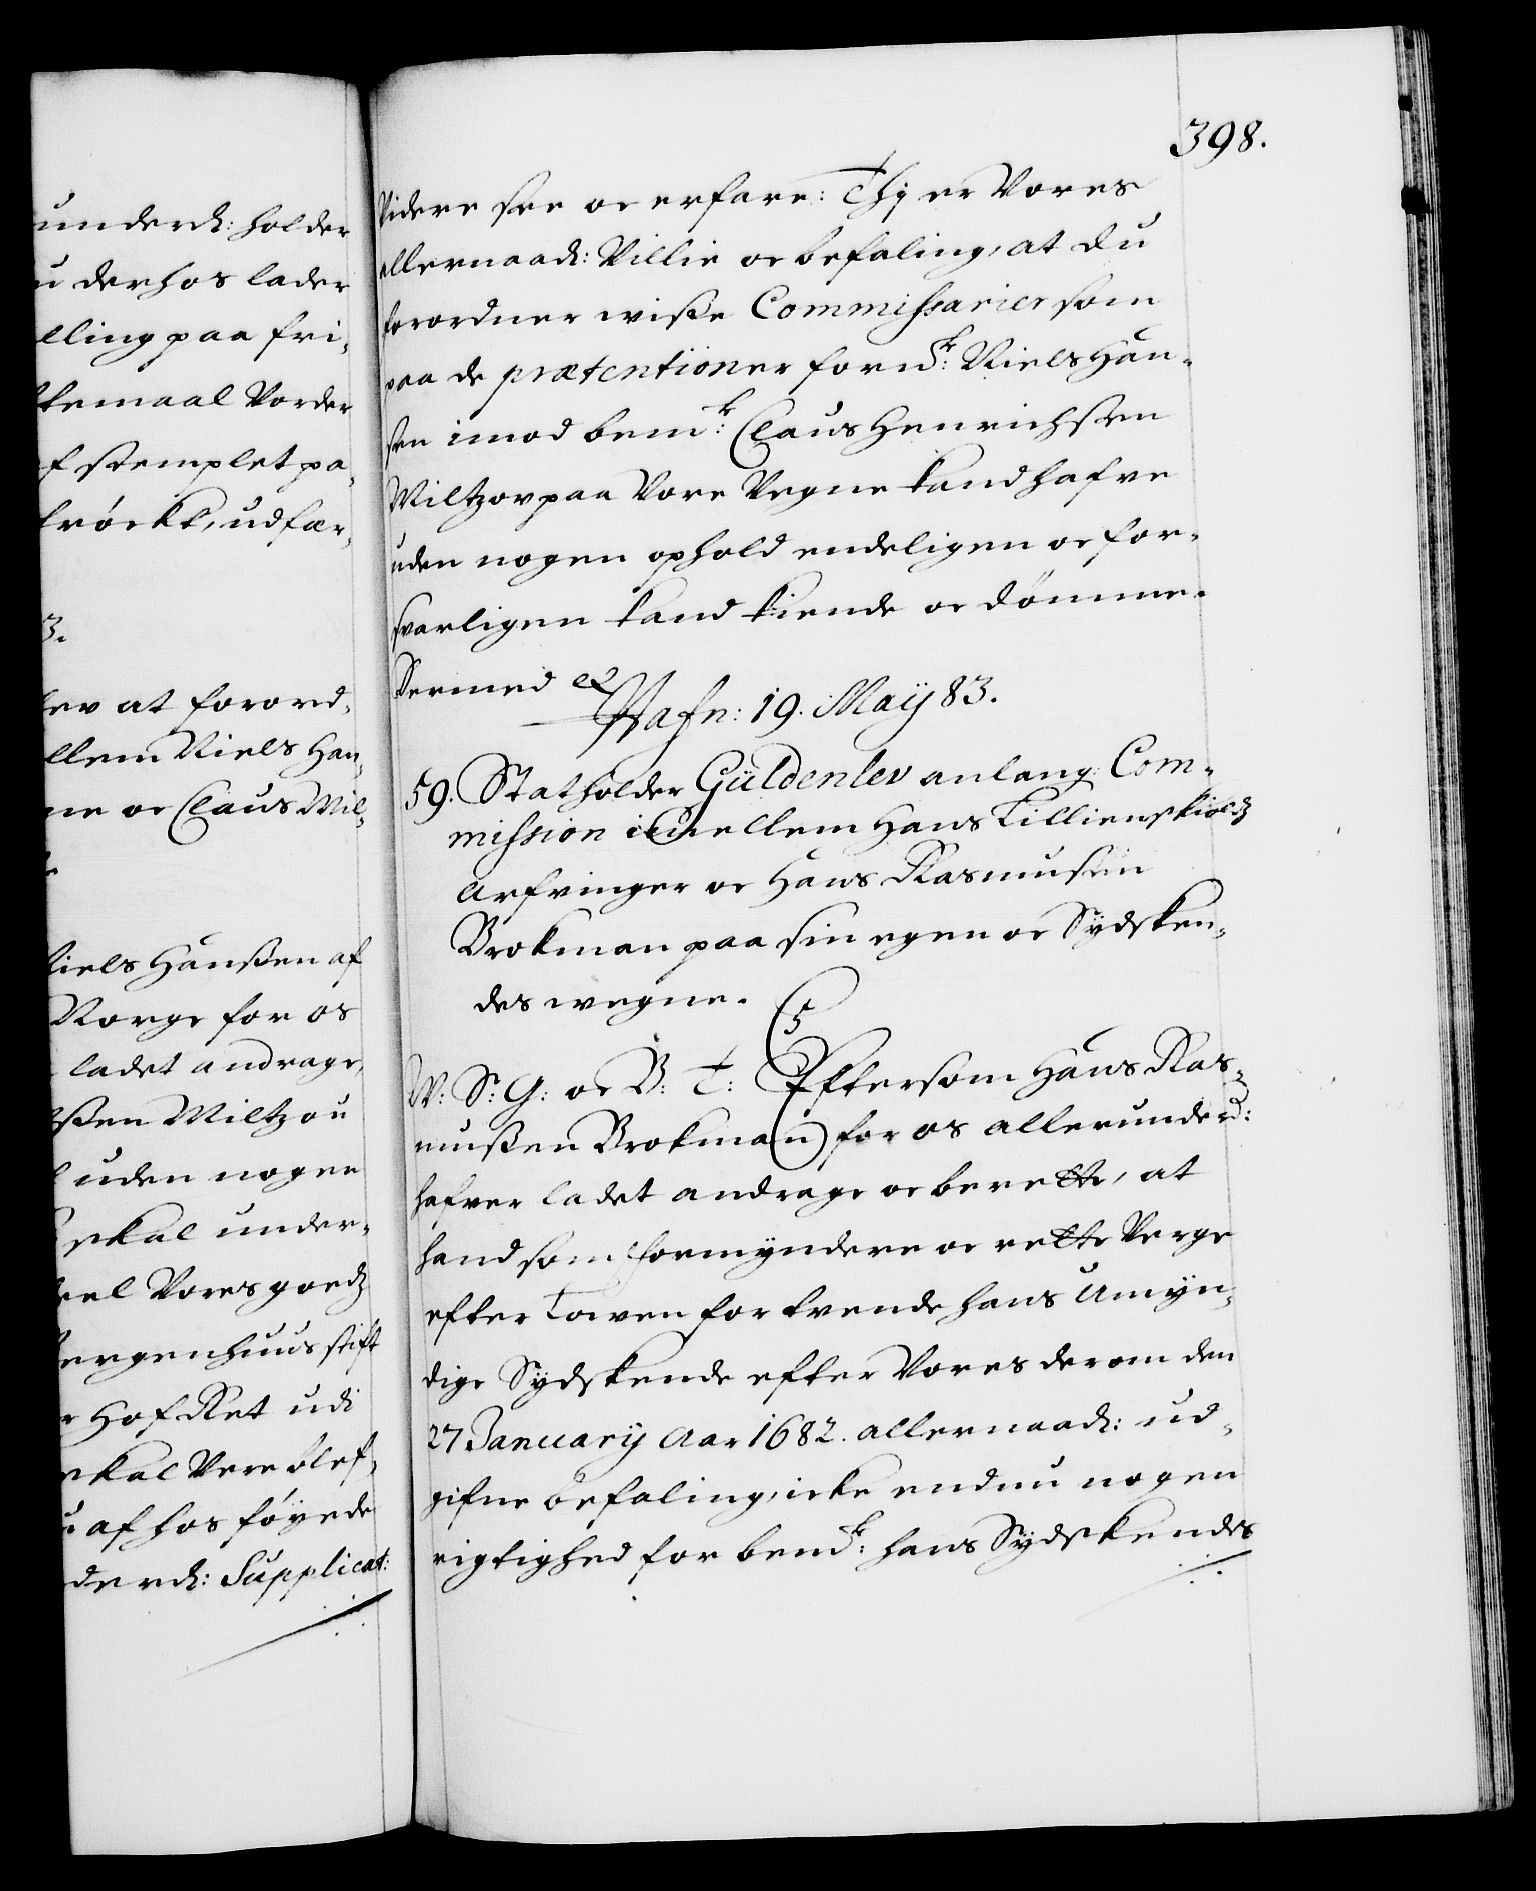 underd: holder
u derhos lader
lling paa fri-
kemaal Vorder
f stemplet pa-
trøckt, udfær-
3.
lev at forord-
llem Niels Han-
ne oc Claus Mil-
Niels Hanßen af
Norge for os
ladet andrage,
ßen Miltzou
uden nogen
skal under-
eel Vores goedz
ergenhuus stift
r Hof Ret udi
skal Vere blef-
u af hos føyede
derd: Supplicat:
398.
Videre see oc erfare: Thj er Vores
allernaad: Villie oc befaling, at du
forordner wiße Commissarier som
paa de prætentioner fornd: Niels Han-
sen imod bemt: Claus Henrichsen
Miltzov paa Vore Vegne kand hafve
uden nogen ophold endeligen oc for-
svarligen kand kiende oc dömme.
Dermed &
Hafn: 19. Maij 83.
59. Statholder Güldenlev anlang: Com-
mission imellem Hans Lillienskiolds
Arfvinger oc Hans Rasmusen
Brokman paa sin egen oc Sydsken-
des wegne.
C5
W: S: G: oc B: T: Eftersom Hans Ras-
mußen Brokman for os allerunderd:
hafver ladet andrage oc berette, at
hand som formyndere oc rette Verge
efter Lowen for tvende hans Umyn-
dige Sydskende efter Vores derom den
27 Januarij Aar 1682. allernaad: ud-
gifne befaling, icke endnu nogen
rigtighed for bemt: hans Sydskendes